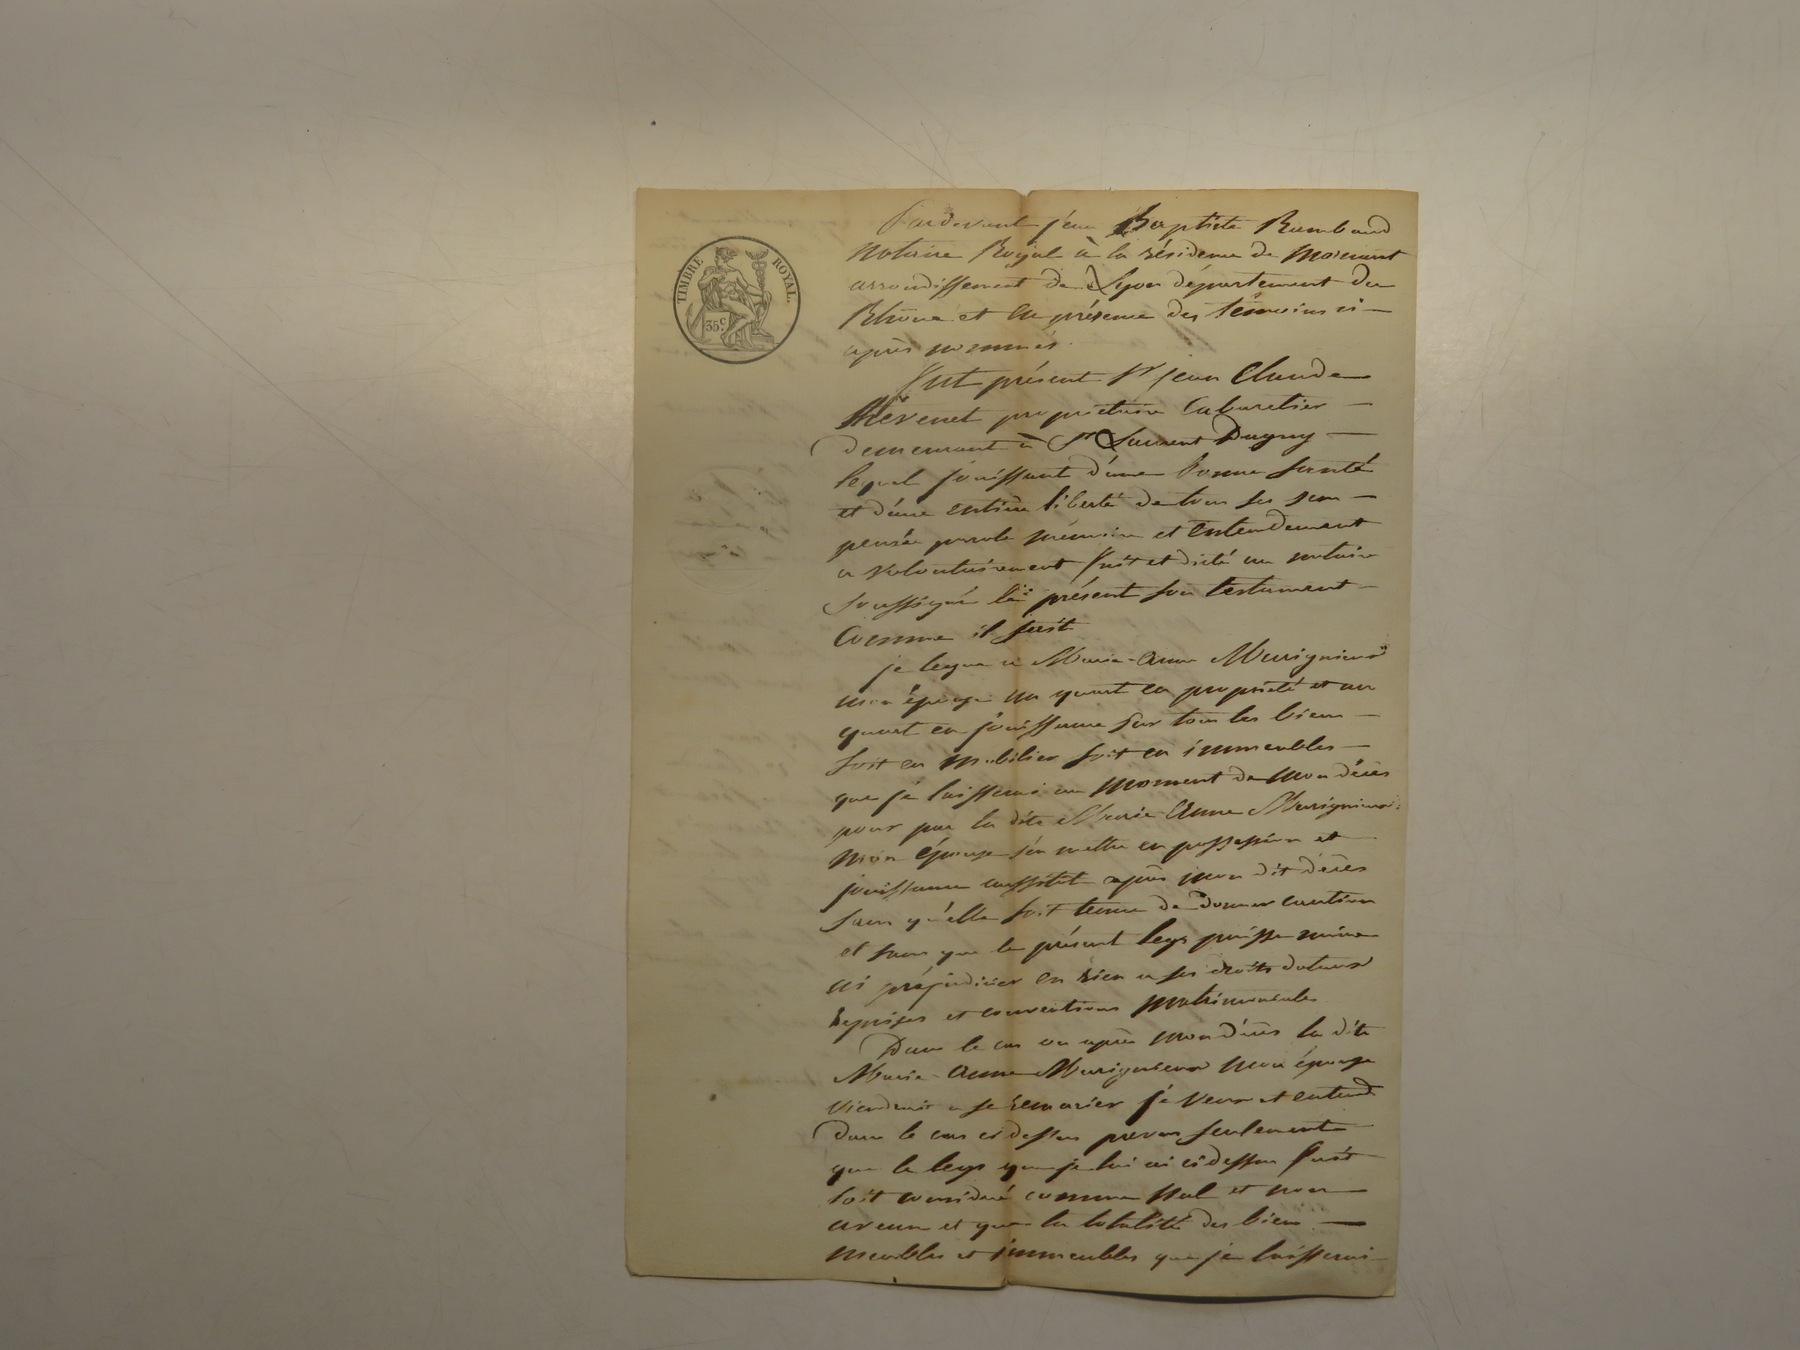 TIMBRE ROYAL.
35 c.
Pardevant jean Baptiste Rambaud
Notaire Royal à la résidence de Mornant
arrondissement de Lyon département du
Rhône et en présence des témoins ci-
après nommés.
Fut présent Sr jean Claude
Thévenet propriétaire Cabaretier
demeurant à St Laurent Dagny
lequel jouissant d'une bonne santé
et d'une entière liberté de tous ses sens
pensée parole mémoire et entendement
a volontairement fait et dicté au notaire
soussigné le présent son testament
Comme il suit
je legue a Marie-Anne
mon épouse un quart en propriété et un
quart en jouissance sur tous les biens
soit en mobilier soit en immeubles
que je laisserai au moment de mon décès
pour par la dite Marie Anne
mon épouse s'en mettre en possession et
jouissance aussitôt après mon dit décès
sans qu'elle soit tenue de donner caution
et sans que le présent legs puisse nuire
ni préjudicier en rien a ses droits dotaux
reprises et conventions matrimoniales
Dans le cas ou après mon décès la dite
Marie-Anne mon épouse
viendrait a se remarier je veux et entend
dans le cas ci dessus prevu seulement
que le legs que je lui ai ci dessus fait
soit considéré comme nul et non
avenu et que la totalité des biens
meubles et immeubles que je laisserai